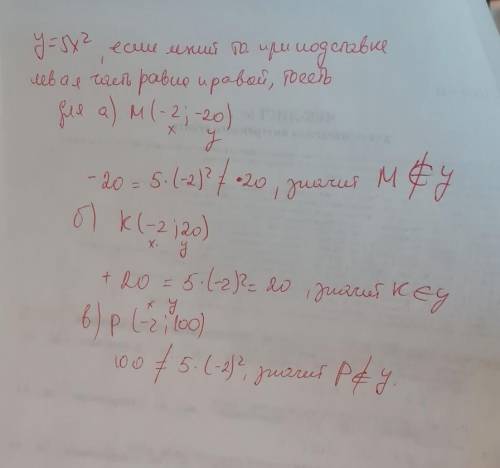 y=5x², если лежит то при подставке
левая часть равна правой, тоесть
для а) M(-2; -20)
x y
-20 = 5·(-2)² ≠ 20, значит M ∉ y
б) K(-2; 20)
x y
+20 = 5·(-2)² = 20, значит K ∈ y
x y
в) P(-2; 100)
100 ≠ 5·(-2)², значит P ∉ y.